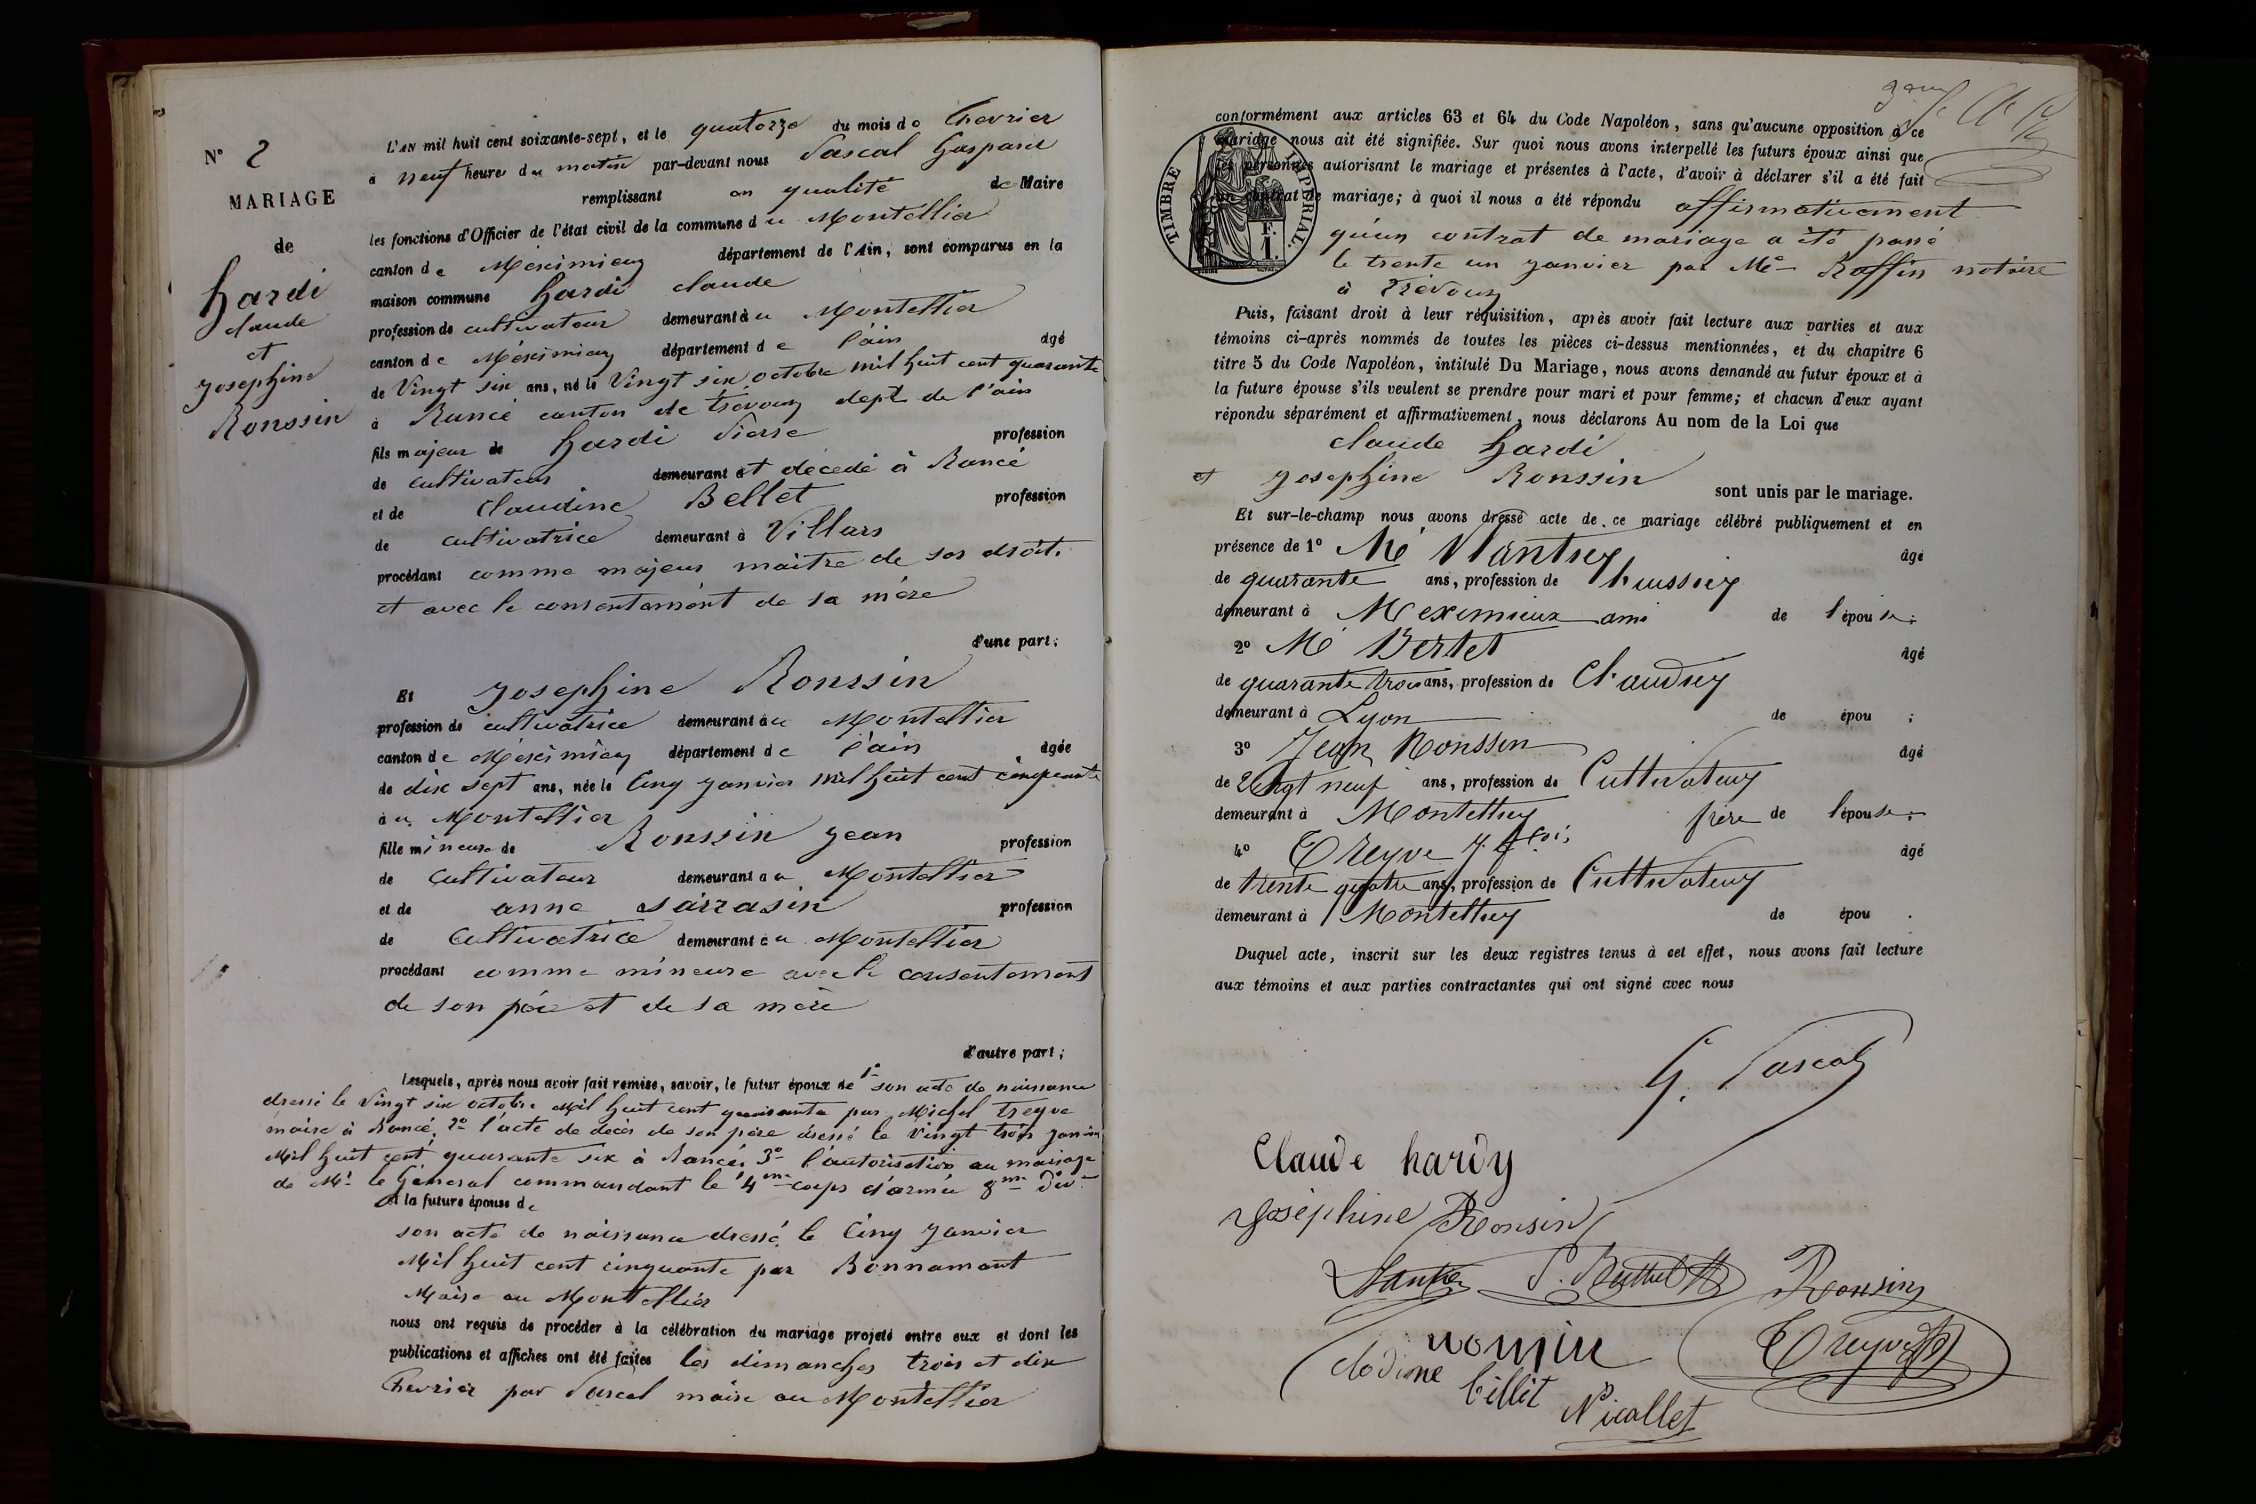 N° 2
MARIAGE
de
hardi
claude
et
Josephine
Ronssin
L'AN mil huit cent soixante-sept, et le quatorze du mois de fevrier
à neuf heures du matin par-devant nous Pascal Gaspard
remplissant en qualité de Maire
les fonctions d'Officier de l'état civil de la commune du Montellier
canton de Méximieux département de l'Ain, sont comparus en la
maison commune hardi claude
profession de cultivateur demeurant au Montellier
canton de Méximieux département de l'ain âgé
de Vingt six ans, né le Vingt six octobre mil huit cent quarante
à Rancé canton de trévoux dept de l'ain
fils majeur de hardi Pierre profession
de cultivateur demeurant et décédé à Rancé
et de Claudine Bellet profession
de cultivatrice demeurant à Villars
procédant comme majeur maitre de ses droits
et avec le consentement de sa mère
d'une part;
Et Josephine Ronssin
profession de cultivatrice demeurant au Montellier
canton de Méximieux département de l'ain âgée
de dix sept ans, née le Cinq Janvier mil huit cent cinquante
au Montellier
fille mineure de Ronssin Jean profession
de Cultivateur demeurant au Montellier
et de anne Sarrasin profession
de Cultivatrice demeurant au Montellier
procédant comme mineure avec le consentement
de son père et de sa mère
d'autre part;
Lesquels, après nous avoir fait remise, savoir, le futur époux de 1° son acte de naissance
dressé le Vingt six octobre Mil huit cent quarante par Michel Treyve
maire à Rancé, 2° l'acte de décès de son père dressé le Vingt trois Janvier
Mil huit cent quarante six à Rancé, 3° l'autorisation au mariage
de Mr le Général commandant le 4me corps d'armée 8me Divon
Et la future épouse de
son acte de naissance dressé le Cinq Janvier
Mil huit cent cinquante par Bonnamont
Maire au Montellier
nous ont requis de procéder à la célébration du mariage projeté entre eux et dont les
publications et affiches ont été faites les dimanches trois et dix
fevrier par Pascal maire au Montellier
conformément aux articles 63 et 64 du Code Napoléon, sans qu'aucune opposition à ce
mariage nous ait été signifiée. Sur quoi nous avons interpellé les futurs époux ainsi que
les personnes autorisant le mariage et présentes à l'acte, d'avoir à déclarer s'il a été fait
un contrat de mariage; à quoi il nous a été répondu affirmativement
qu'un contrat de mariage a été passé
le trente un Janvier par Me Raffin notaire
à Trevoux
TIMBRE IMPÉRIAL.
1 F.
Puis, faisant droit à leur réquisition, après avoir fait lecture aux parties et aux
témoins ci-après nommés de toutes les pièces ci-dessus mentionnées, et du chapitre 6
titre 5 du Code Napoléon, intitulé Du Mariage, nous avons demandé au futur époux et à
la future épouse s'ils veulent se prendre pour mari et pour femme; et chacun d'eux ayant
répondu séparément et affirmativement, nous déclarons Au nom de la Loi que
claude hardi
et Josephine Ronssin sont unis par le mariage.
Et sur-le-champ nous avons dressé acte de ce mariage célébré publiquement et en
présence de 1° Mr Nantuy âgé
de quarante ans, profession de huissier
demeurant à Meximieux ami de l'épouse;
2° Mr Bertet âgé
de quarante trois ans, profession de
demeurant à Lyon de épou ;
3° Jean Ronssin âgé
de Vingt neuf ans, profession de Cultivateur
demeurant à Montellier frère de l'épouse;
4° Treyve âgé
de trente quatre ans, profession de Cultivateur
demeurant à Montellier de épou .
Duquel acte, inscrit sur les deux registres tenus à cet effet, nous avons fait lecture
aux témoins et aux parties contractantes qui ont signé avec nous
G. Pascal
Claude hardy
Joséphine Ronsin
Ronsin
Treyve
clodine billit
Nicollet